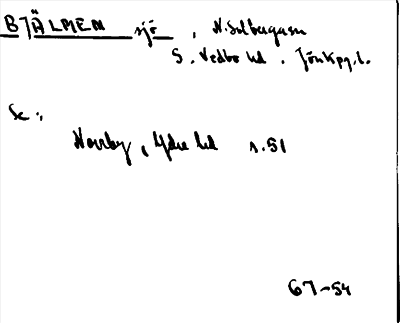 BJÄLMEN sjö, N. Solberga sn
S. Vedbo hd. Jönkpg. l.
Se:
Norrby, Ydre hd s. 51
67-54